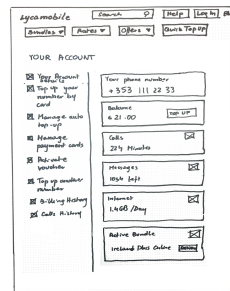 Lycamobile Search Help Log In
Bundles Rates Offers Quick Top Up
YOUR ACCOUNT
Your Account details
Top up your number by card
Manage auto top-up
Manage payment cards
Activate voucher
Top up another number
Billing History
Calls History
Your phone number
+353 111 22 33
Balance
€21.00 TOP UP
Calls
224 Minutes
Messages
1054 left
Internet
1.4GB /Day
Active Bundle
Ireland Plus Online